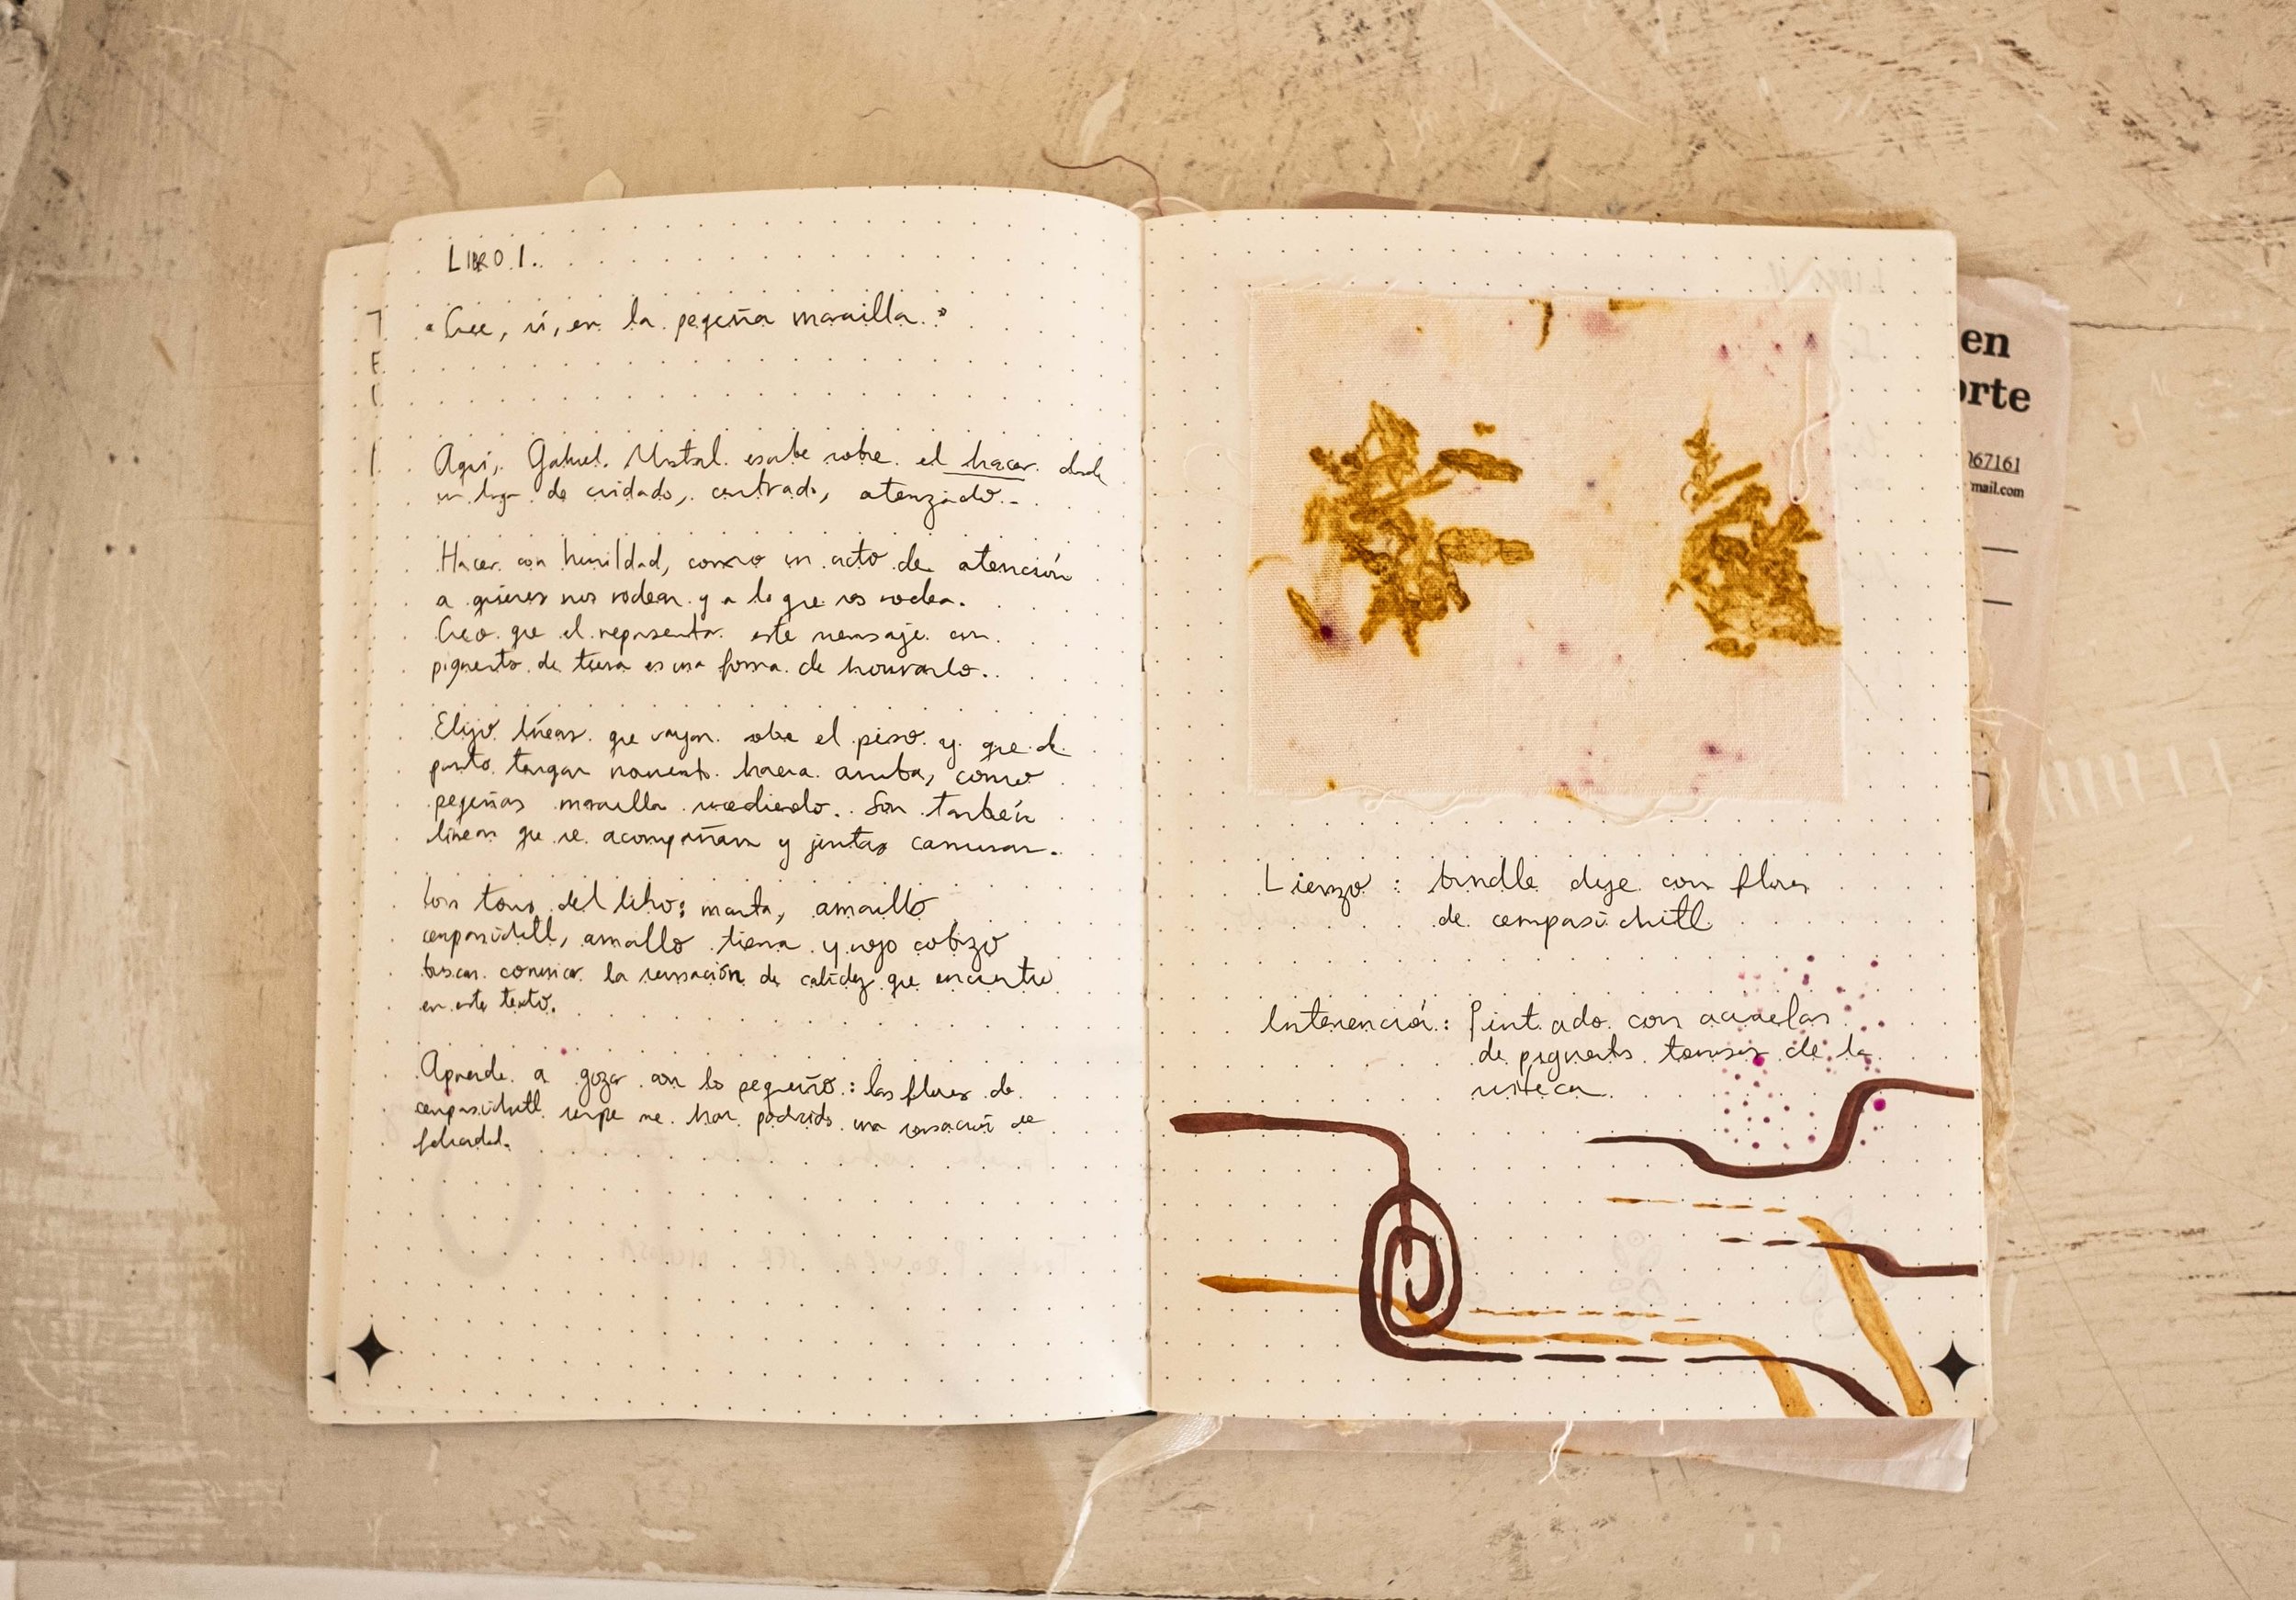 LIBRO 1.
"Cree, sí, en la pequeña maravilla."
Aquí, Gabriel. Mistral escribe sobre el hacer desde
un lugar de cuidado, centrado, atenzado.-
Hacer con humildad, como un acto de atención
a quienes nos rodean y a lo que nos rodea.
Creo que el representar este mensaje con
pigmento de tierra es una forma de honrarlo.
Elijo líneas que vayan sobre el piso y que de
pronto tengan movimiento hacia arriba, como
pequeñas maravilla sucediendo. Son también
líneas que se acompañan y juntas caminan.
Los tonos del libro: menta, amarillo
cempasúchitl, amarillo tierra y rojo cobrizo
buscan comunicar la sensación de calidez que encuentro
en este texto.
Aprende a gozar con lo pequeño: las flores de
cempasúchitl siempre me han podrido una sensación de
felicidad.
Lienzo: bundle dye con flores
de cempasúchitl
Intervención: Pintado con acuarelas
de pigmentos de la
mixteca
en
orte
067161
mail.com